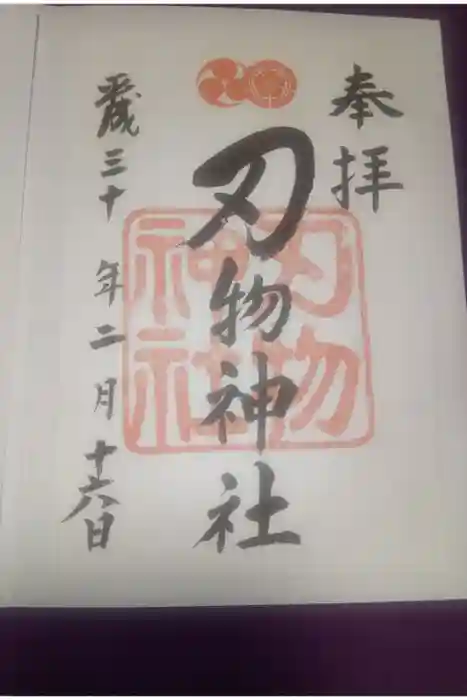 奉拝
刃物神社
刃物
神社
平成三十年二月十六日